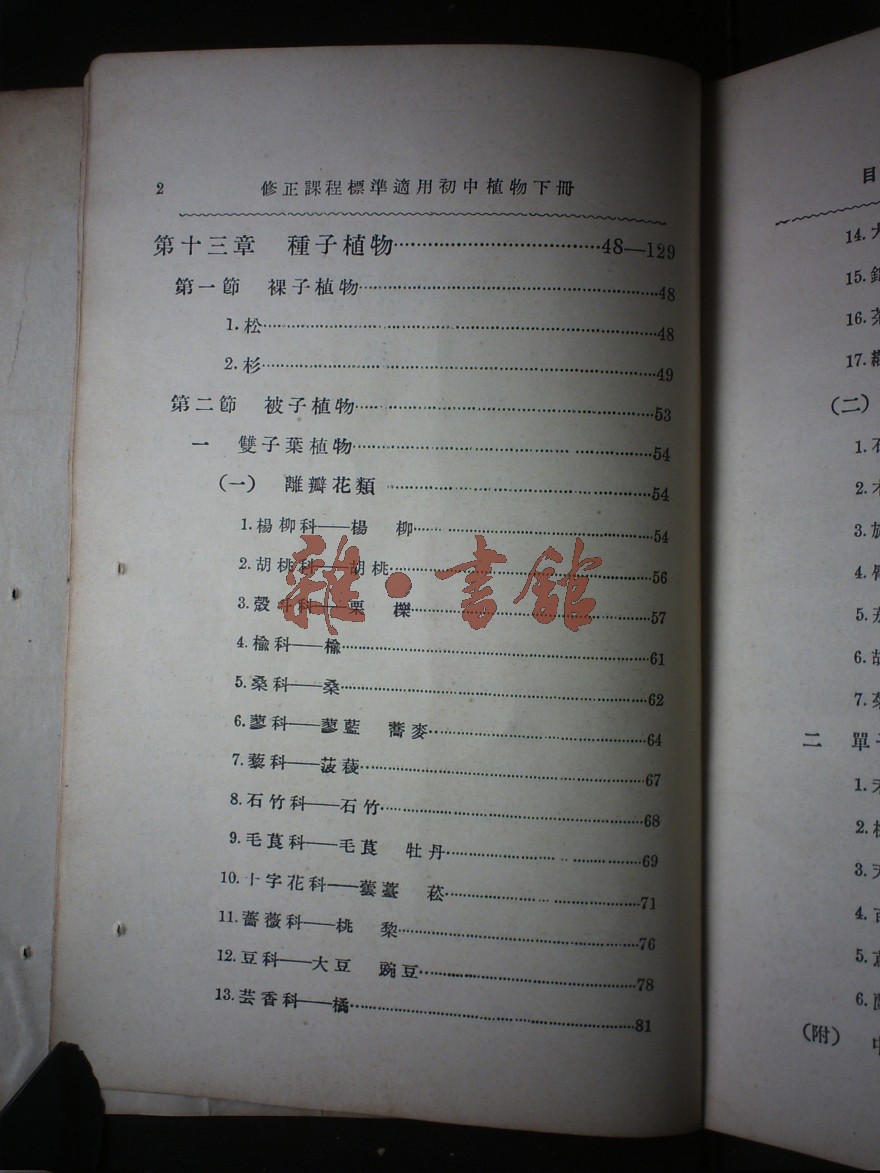 2 修正課程標準適用初中植物下冊
第十三章 種子植物……48—129
第一節 裸子植物……48
1.松……48
2.杉……49
第二節 被子植物……53
一 雙子葉植物……54
(一) 離瓣花類……54
1.楊柳科——楊 柳……54
2.胡桃科——胡桃……56
3.殼斗科——栗 櫟……57
4.榆科——榆……61
5.桑科——桑……62
6.蓼科——蓼藍 蕎麥……64
7.藜科——菠薐……67
8.石竹科——石竹……68
9.毛莨科——毛莨 牡丹……69
10.十字花科——蕓薹 菘……71
11.薔薇科——桃 棃……76
12.豆科——大豆 豌豆……78
13.芸香科——橘……81
雜·書館
目
14.
15.
16.
17.
(二)
1.
2.
3.
4.
5.
6.
7.
二 單
1.
2.
3.
4.
5.
6.
(附)